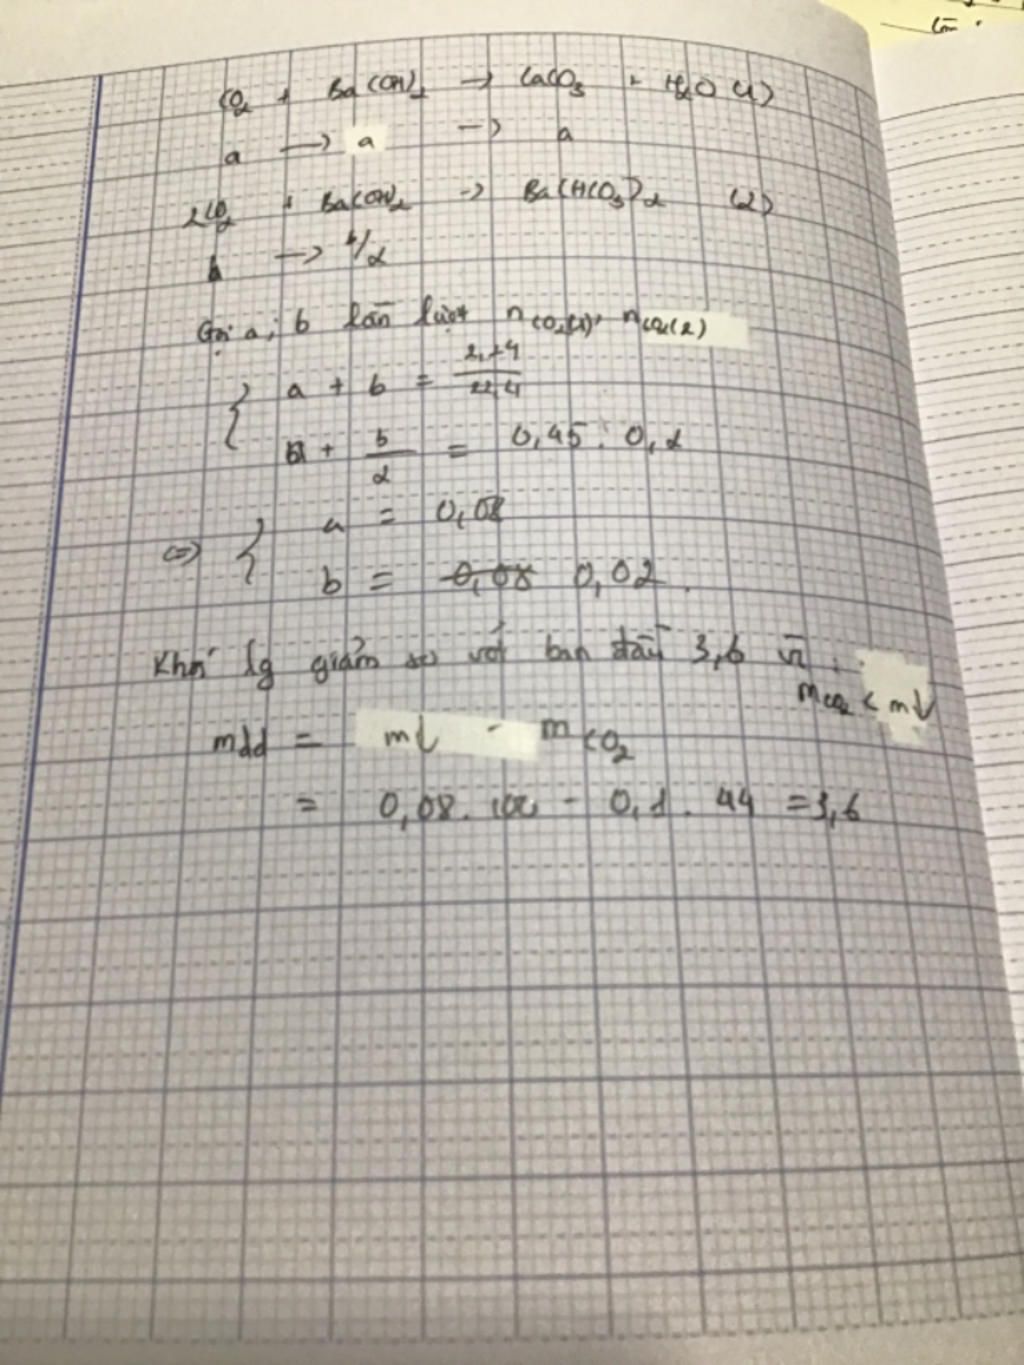 CO2 + Ba(OH)2 → CaCO3 + H2O (1)
a → a → a
2CO2 + Ba(OH)2 → Ba(HCO3)2 (2)
b → b/2
Gọi a, b lần lượt nCO2(1), nCO2(2)
{ a + b = 2,24/22,4
a + b/2 = 0,45. 0,2
<=> { a = 0,08
b = 0,08 0,02.
Khối lg giảm so với ban đầu 3,6 vì:
mCO2 < m↓
mdd = m↓ - mCO2
= 0,08. 100 - 0,1. 44 = 3,6